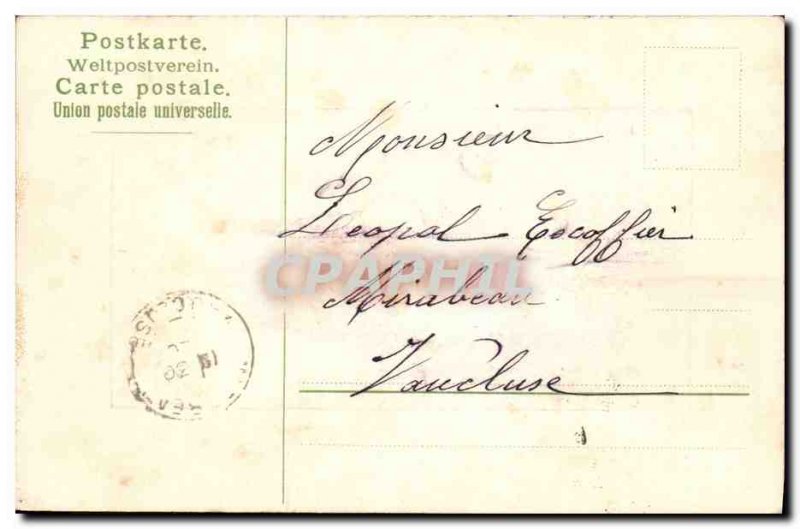 Postkarte.
Weltpostverein.
Carte postale.
Union postale universelle.
Monsieur
Leopol Escoffier
Mirabeau
Vaucluse
CPAPHIL